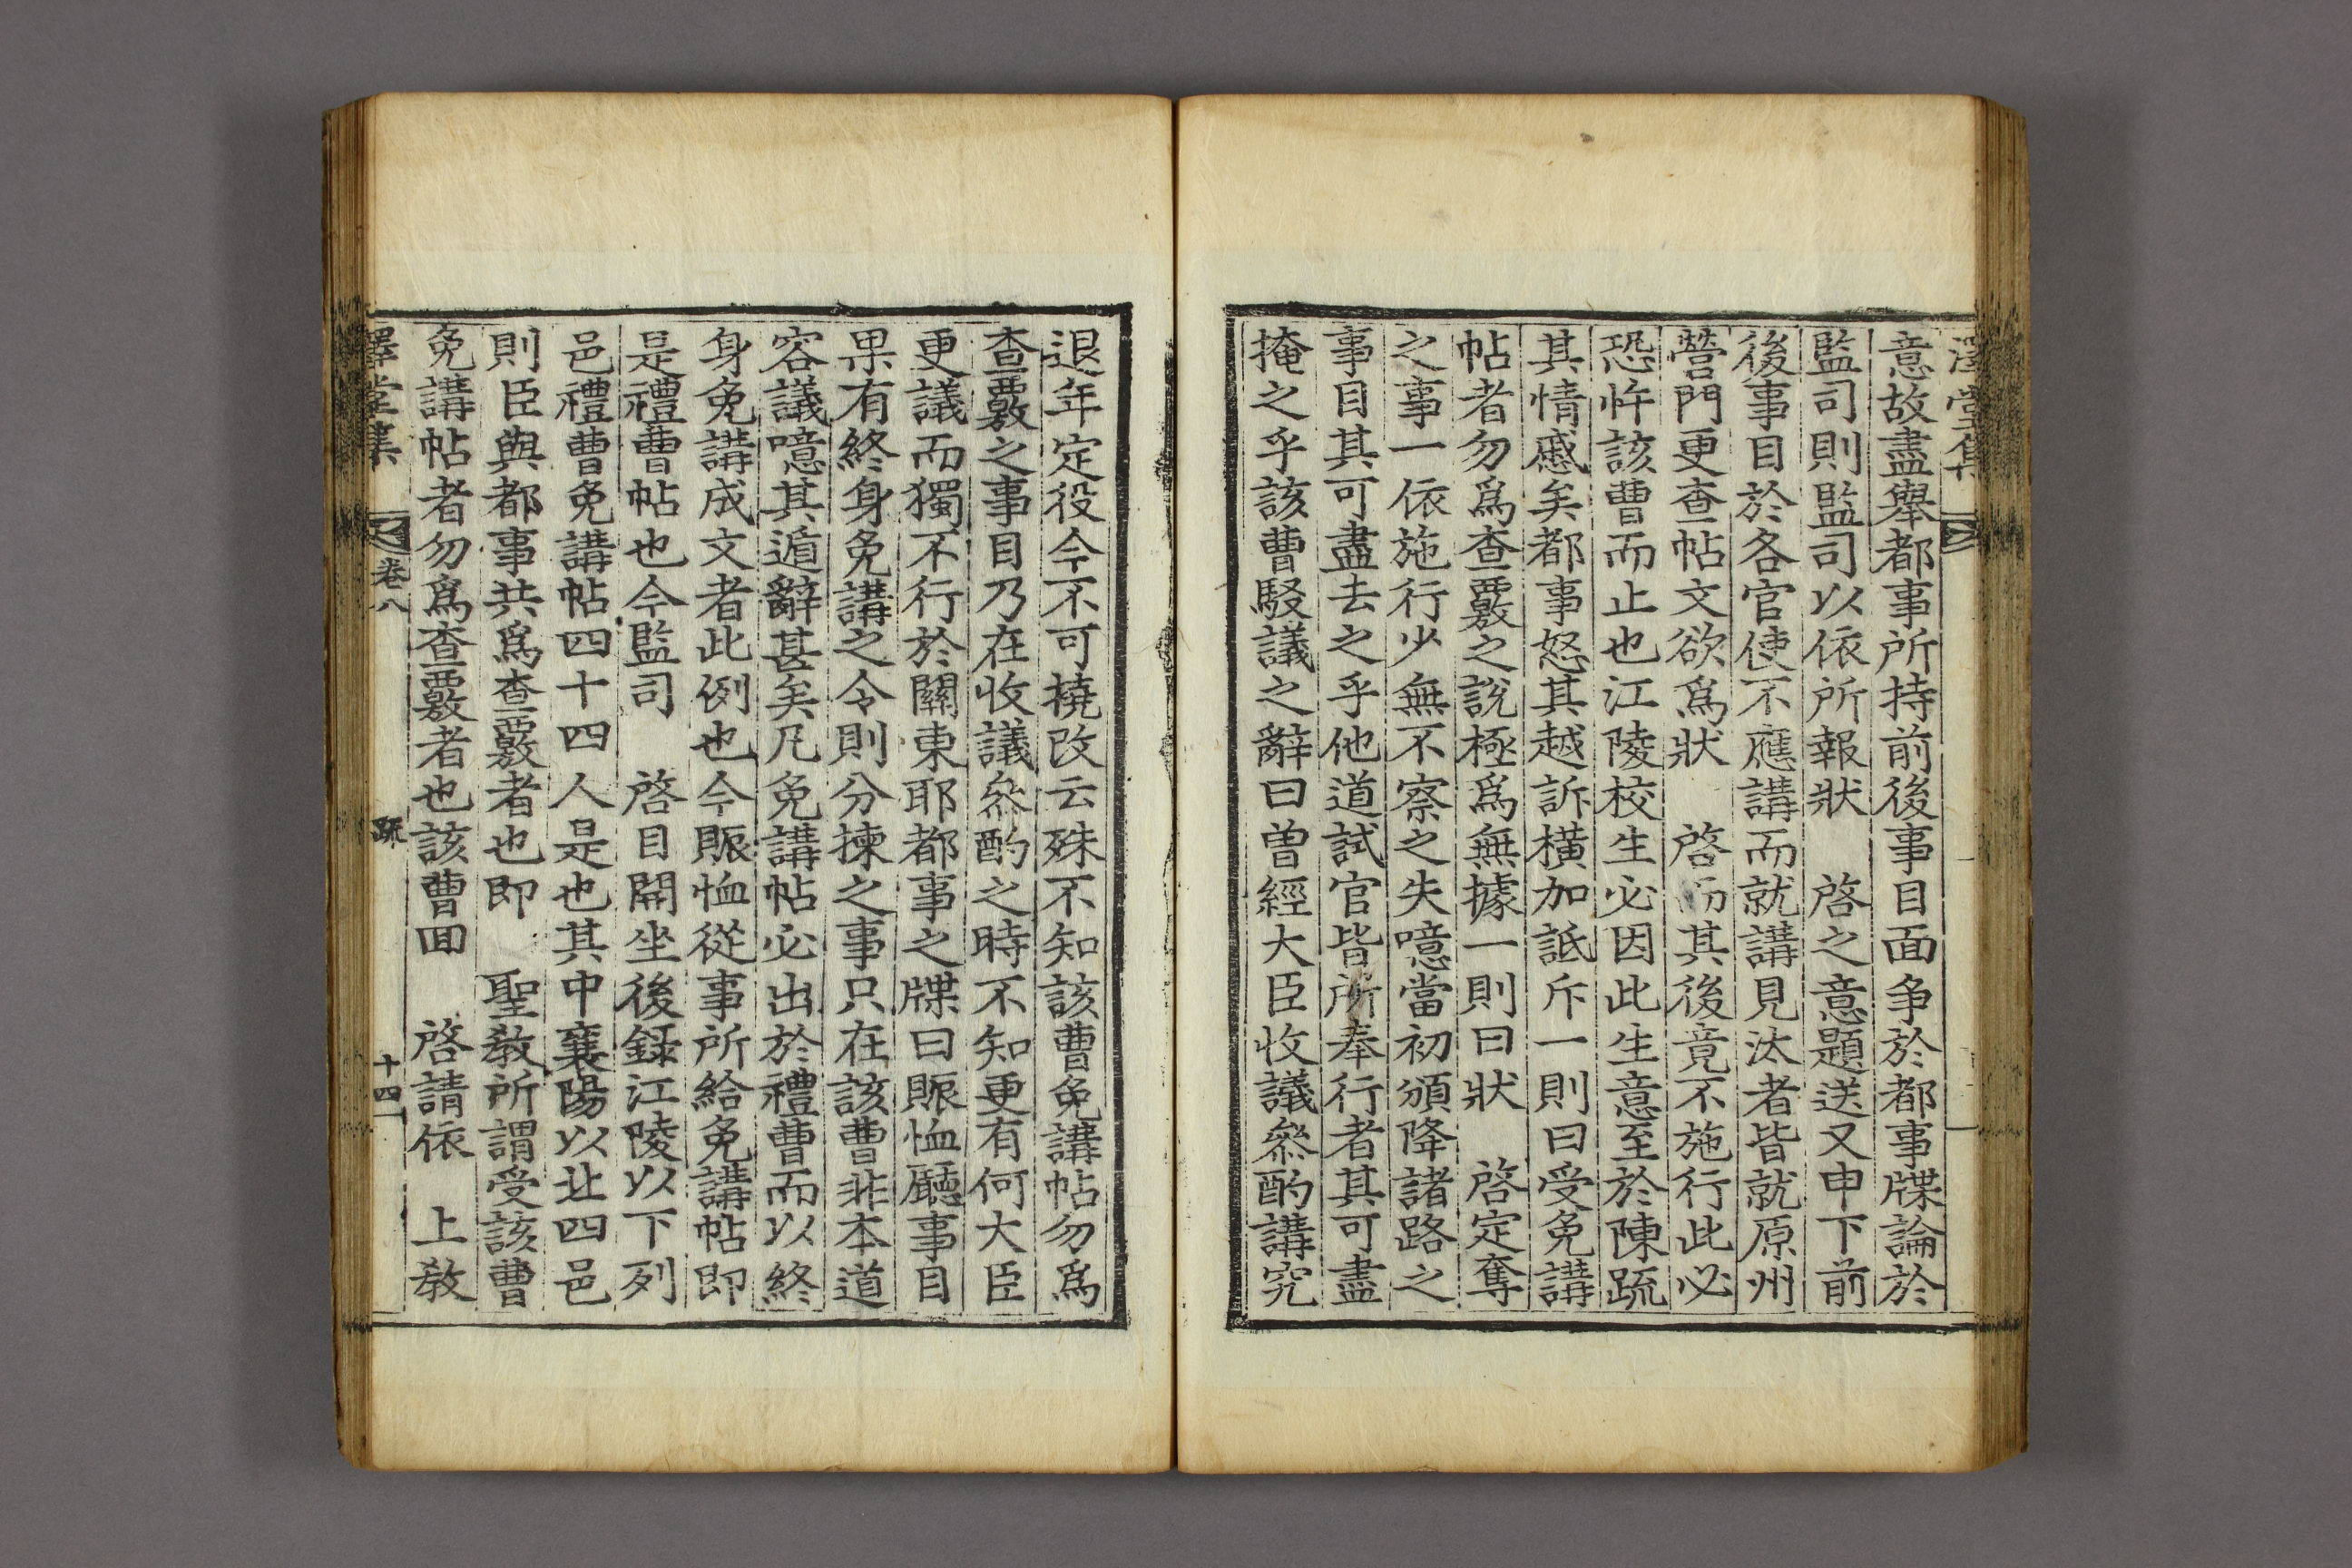 澤堂集
意故盡舉都事所持前後事目面争於都事牒論於
監司則監司以依所報狀 啓之意題送又申下前
後事目於各官使不應講而就講見汰者皆就原州
營門更查帖文欲爲狀 啓而其後竟不施行此必
恐忤該曹而止也江陵校生必因此生意至於陳疏
其情慼矣都事怒其越訴橫加詆斥一則曰受免講
帖者勿爲查覈之說極爲無據一則曰狀 啓定奪
之事一依施行少無不察之失噫當初頒降諸路之
事目其可盡去之乎他道試官皆所奉行者其可盡
掩之乎該曹駁議之辭曰曾經大臣收議叅酌講究
退年定役今不可撓改云殊不知該曹免講帖勿爲
查覈之事目乃在收議叅酌之時不知更有何大臣
更議而獨不行於關東耶都事之牒曰賑恤廳事目
果有終身免講之令則分揀之事只在該曹非本道
容議噫其遁辭甚矣凡免講帖必出於禮曹而以終
身免講成文者此例也今賑恤從事所給免講帖即
是禮曹帖也今監司 啓目開坐後錄江陵以下列
邑禮曹免講帖四十四人是也其中襄陽以北四邑
則臣與都事共爲查覈者也即 聖敎所謂受該曹
免講帖者勿爲查覈者也該曹回 啓請依 上敎
澤堂集 卷八 疏 十四